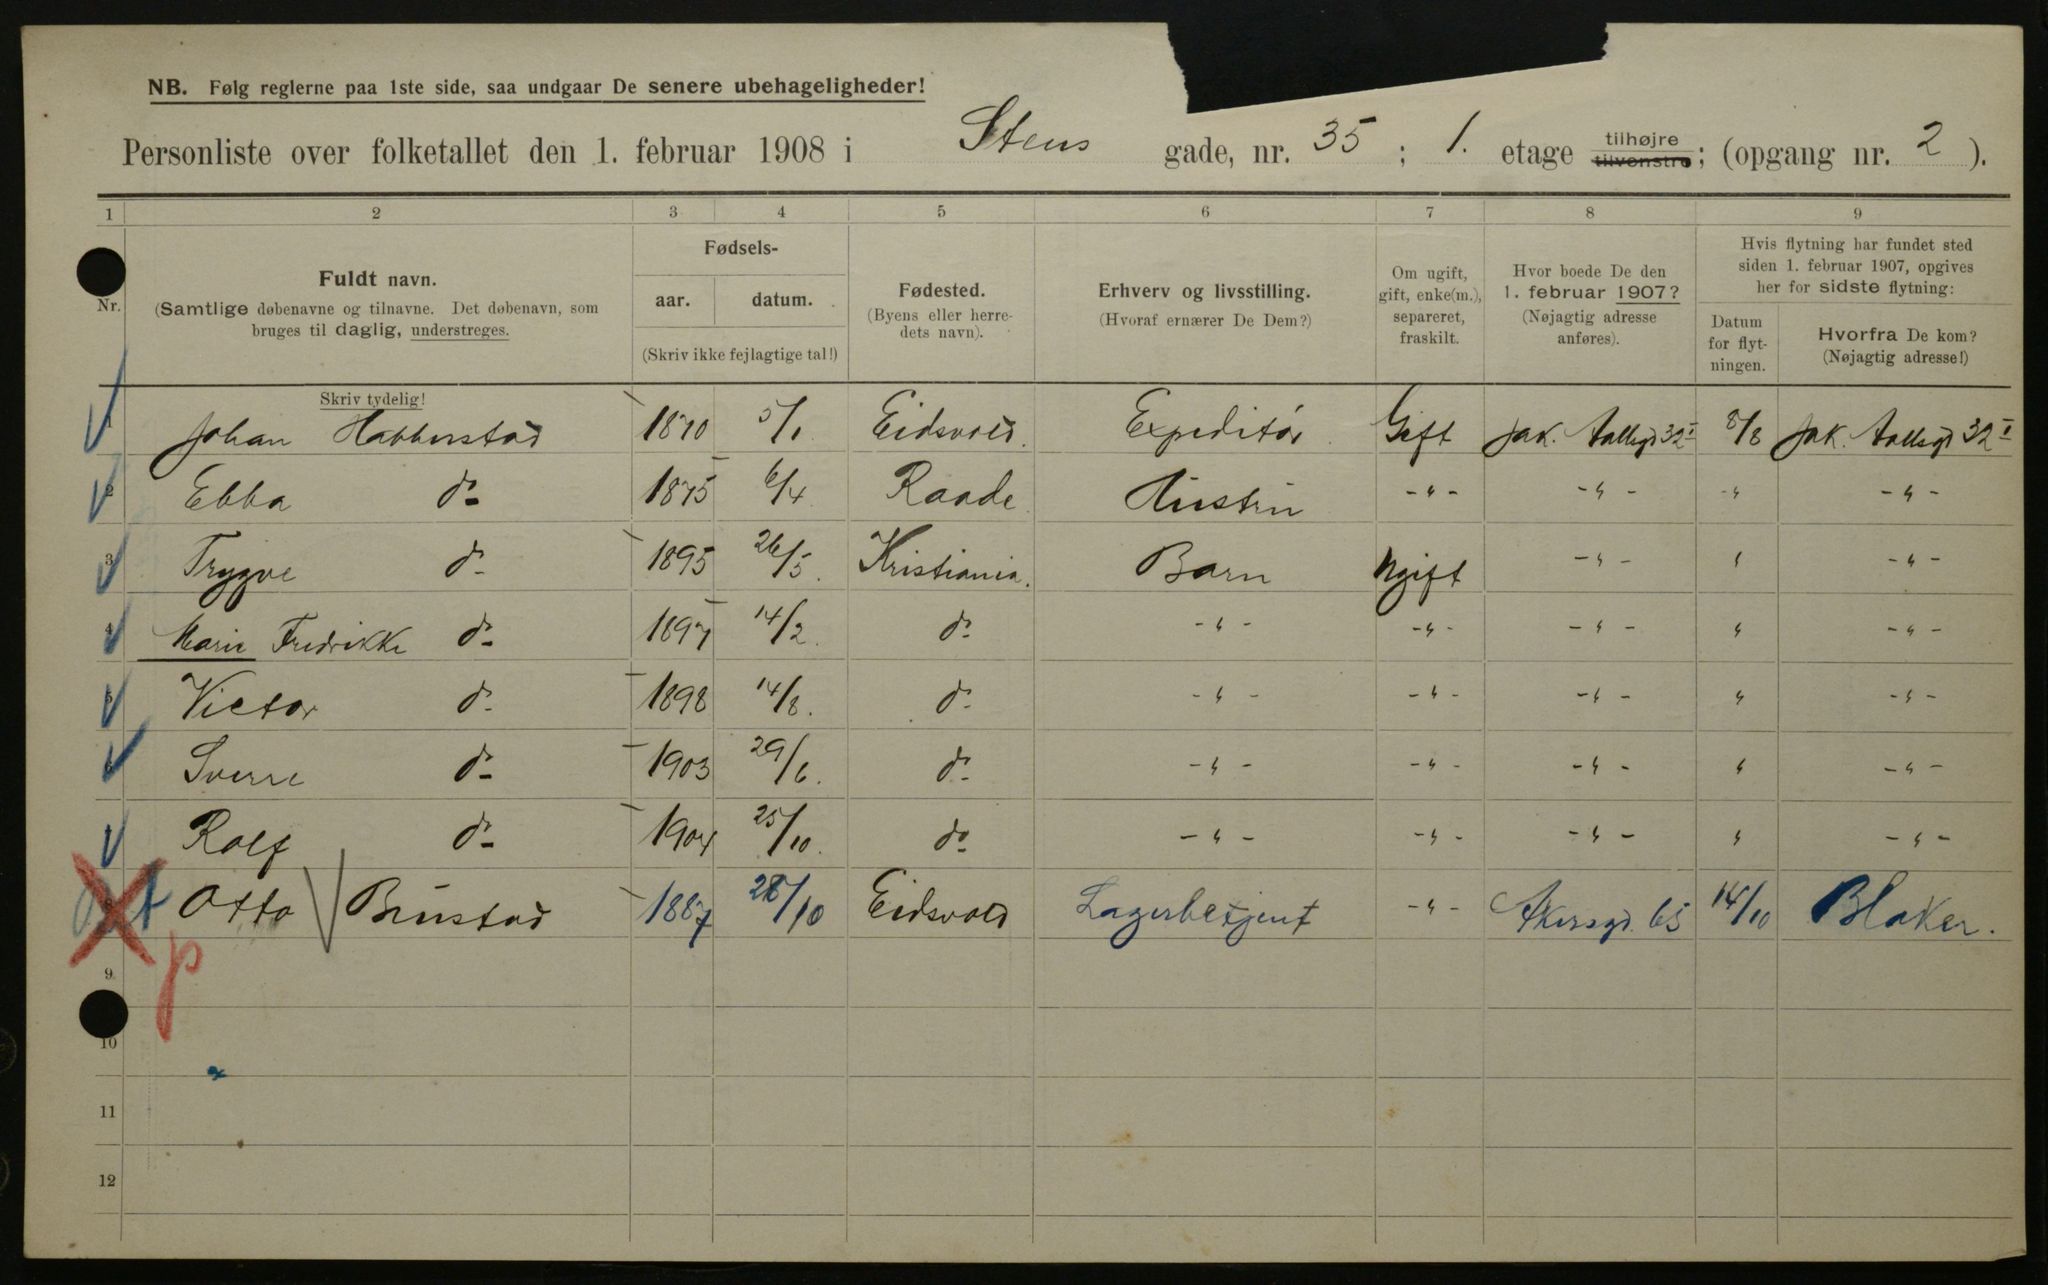 NB. Følg reglerne paa 1ste side, saa undgaar De senere ubehageligheder!
Personliste over folketallet den 1. februar 1908 i Stens gade, nr. 35 ; 1. etage tilhøjre tilvenstre; (opgang nr. 2 ).
1 2 3 4 5 6 7 8 9
Nr.
Fuldt navn.
(Samtlige døbenavne og tilnavne. Det døbenavn, som
bruges til daglig, understreges.
Skriv tydelig!
Fødsels-
aar. datum.
(Skriv ikke fejlagtige tal!)
Fødested.
(Byens eller herre-
dets navn).
Erhverv og livsstilling.
(Hvoraf ernærer De Dem?)
Om ugift,
gift, enke(m.),
separeret,
fraskilt.
Hvor boede De den
1. februar 1907?
(Nøjagtig adresse
anføres).
Hvis flytning har fundet sted
siden 1. februar 1907, opgives
her for sidste flytning:
Datum
for flyt-
ningen.
Hvorfra De kom?
(Nøjagtig adresse!)
1 Johan Habberstad 1870 5/1. Eidsvold. Expeditør Gift Jak. Aallsgd 32 I 8/8 Jak. Aallsgd 32 I
2 Ebba do 1875 6/4 Raade Hustru -"- -"- -"- -"-
3 Trygve do 1895 26/5. Kristiania. Barn Ugift -"- " -"-
4 Marie Fredrikke do 1897 14/2. do -"- -"- -"- " -"-
5 Victor do 1898 14/8. do -"- -"- -"- " -"-
6 Sverre do 1903 29/6. do -"- -"- -"- " -"-
Rolf do 1904 25/10. do -"- -"- -"- " -"-
8 Otto Brustad 1887 28/10 Eidsvold Lagerbetjent -"- Akersgd. 65 14/10 Blaker.
p
9
10
11
12